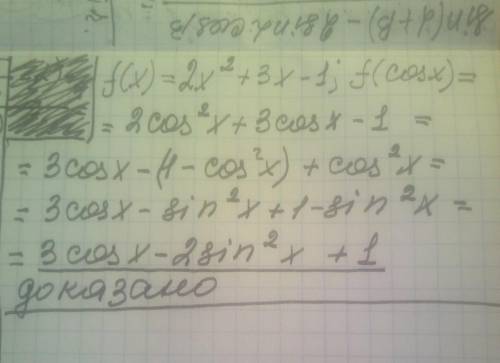 f(x) = 2x² + 3x - 1; f(cosx) =
= 2cos²x + 3cosx - 1 =
= 3cosx - (1 - cos²x) + cos²x =
= 3cosx - sin²x + 1 - sin²x =
= 3cosx - 2sin²x + 1
доказано